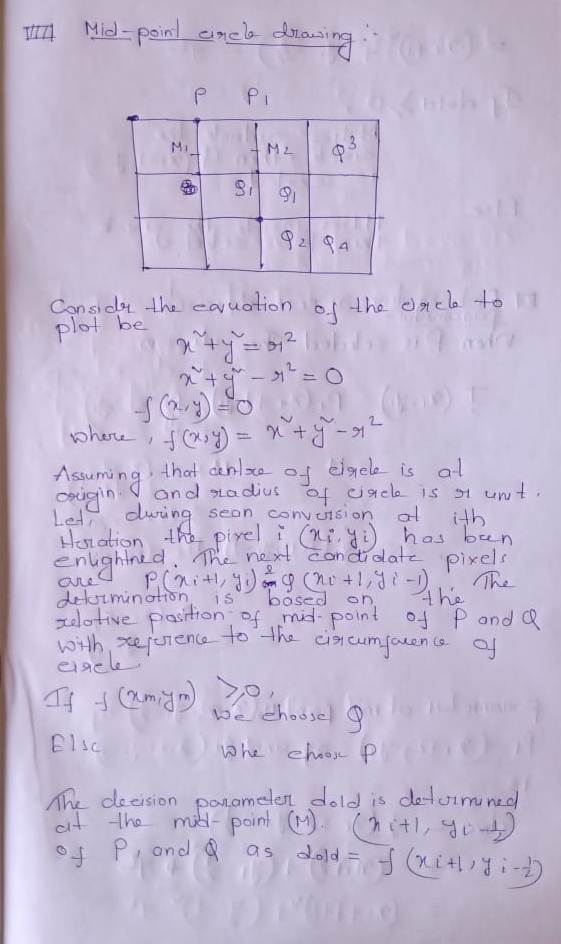 VIII Mid-point circle drawing :-
P P1
M1 M2 Q3
Q1 Q1
Q2 Q4
Consider the eauation of the circle to
plot be
x² + y² = r²
x² + y² - r² = 0
f(x,y) = 0
where, f(x,y) = x² + y² - r²
Assuming that centre of circle is at
origin. and radius of circle is r unit.
Let, during scan conversion at ith
Iteration the pixel i (xi, yi) has been
enlightned. The next candidate pixels
are P(xi+1, yi) & Q (xi+1, yi-1). The
determination is based on the
relative position of mid-point of P and Q
with reference to the circumference of
circle.
If f(xm,ym) ≥0,
we choose Q
Else whe choose P
The decision parameter dold is determined
at the mid-point (M). (xi+1, yi-½)
of P, and Q as dold = f(xi+1, yi-½)